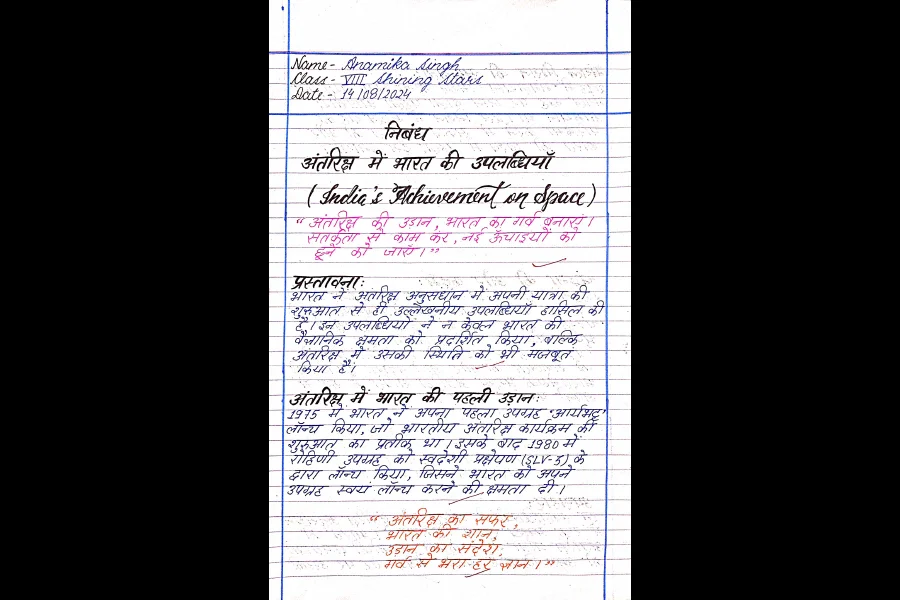 Name - Anamika Singh
Class - VIII Shining Stars
Date - 14/08/2024
निबंध
अंतरिक्ष में भारत की उपलब्धियाँ
(India's Achievement on Space)
"अंतरिक्ष की उड़ान, भारत का गर्व बनाएं।
सतर्कता से काम कर, नई ऊँचाइयों को
छूने को जाएँ।"
प्रस्तावना:
भारत ने अंतरिक्ष अनुसंधान में अपनी यात्रा की
शुरुआत से ही उल्लेखनीय उपलब्धियाँ हासिल की
है। इन उपलब्धियों ने न केवल भारत की
वैज्ञानिक क्षमता को प्रदर्शित किया, बल्कि
अंतरिक्ष में उसकी स्थिति को भी मजबूत
किया है।
अंतरिक्ष में भारत की पहली उड़ान:
1975 में भारत ने अपना पहला उपग्रह 'आर्यभट्ट'
लॉन्च किया, जो भारतीय अंतरिक्ष कार्यक्रम की
शुरुआत का प्रतीक था। इसके बाद 1980 में
रोहिणी उपग्रह को स्वदेशी प्रक्षेपण (SLV-3) के
द्वारा लॉन्च किया, जिसने भारत को अपने
उपग्रह स्वयं लॉन्च करने की क्षमता दी।
"अंतरिक्ष का सफर,
भारत की शान,
उड़ान का संदेश,
गर्व से भरा हर ज्ञान।"